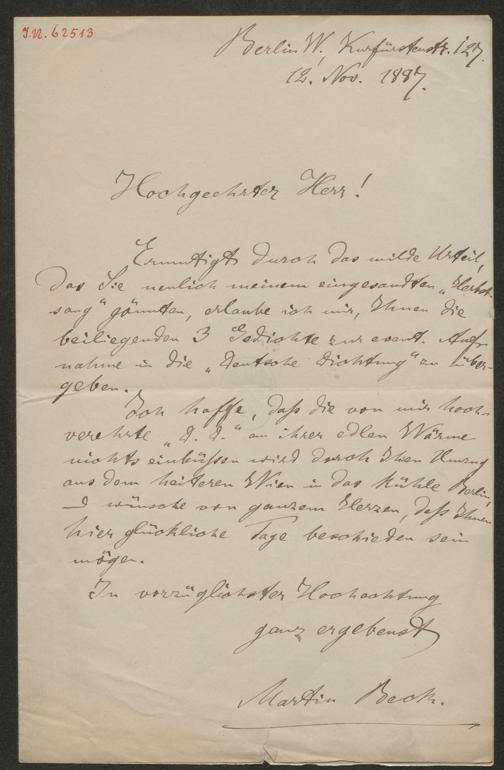 J.N. 62513
Berlin W, Kurfürstenstr. 127.
12. Nov. 1887.
Hochgeehrter Herr!
Ermutigt durch das milde Urteil,
das Sie neulich meinem eingesandten „Herbst-
sang“ gönnten, erlaube ich mir, Ihnen die
beiliegenden 3 Gedichte zur event. Auf-
nahme in die „Deutsche Dichtung“ zu über-
geben.
Ich hoffe, daß die von mir hoch-
verehrte „D. D.“ an ihrer edlen Wärme
nichts einbüßen wird durch Ihren Umzug
aus dem heiteren Wien in das kühle Berlin,
u wünsche von ganzem Herzen, daß Ihnen
hier glückliche Tage beschieden sein
mögen.
In vorzüglichster Hochachtung
ganz ergebenst
Martin Beck.